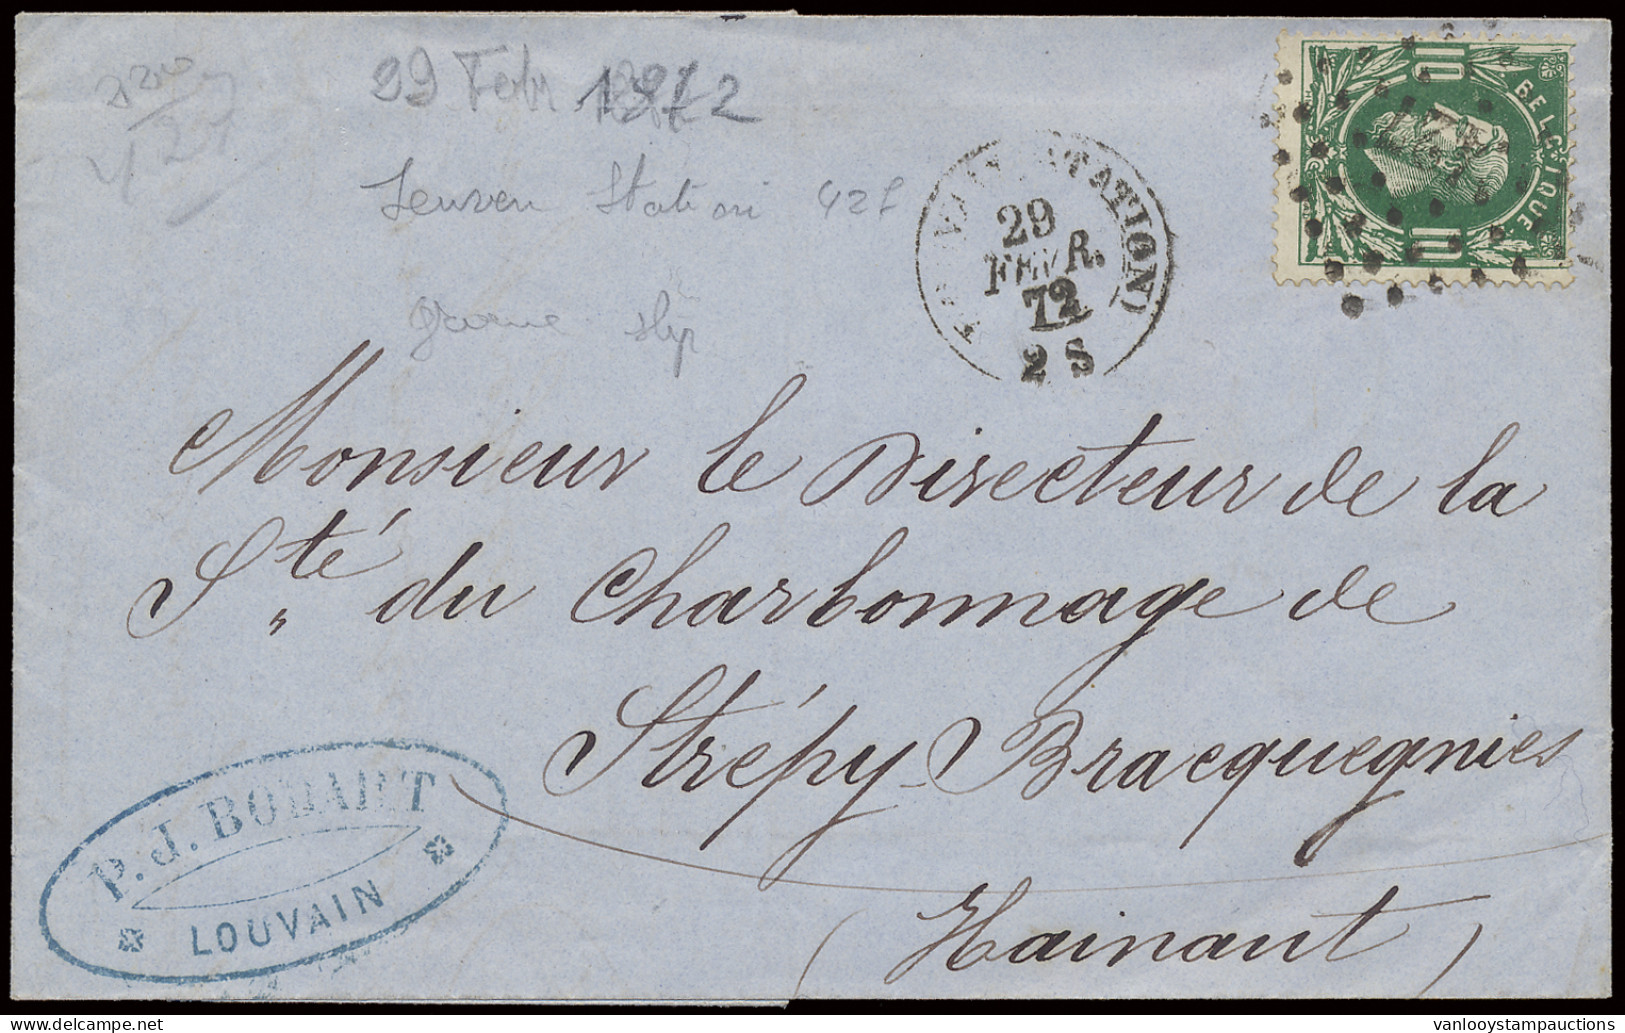 29 Febr 1872
Leuven Station
LOUVAIN (STATION)
29
FEVR.
72
2 S
10
BELGIQUE
10
Monsieur le Directeur de la
Sté du Charbonnage de
Strépy-Bracquegnies
(Hainaut)
P. J. BODART
LOUVAIN
www.vanlooystampauctions.com